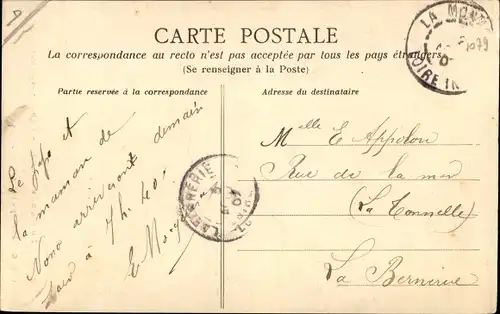 CARTE POSTALE
La correspondance au recto n'est pas acceptée par tous les pays étrangers
(Se renseigner à la Poste)
Partie reservée à la correspondance
Adresse du destinataire
LA MON
LOIRE IN
1079
Le papa et
la maman de
Nono arriveront demain
soir à 7h. 40.
E. M
LA BERNERIE
Melle E. Appolon
Rue de la mer
(La Tonnelle)
La Bernerie